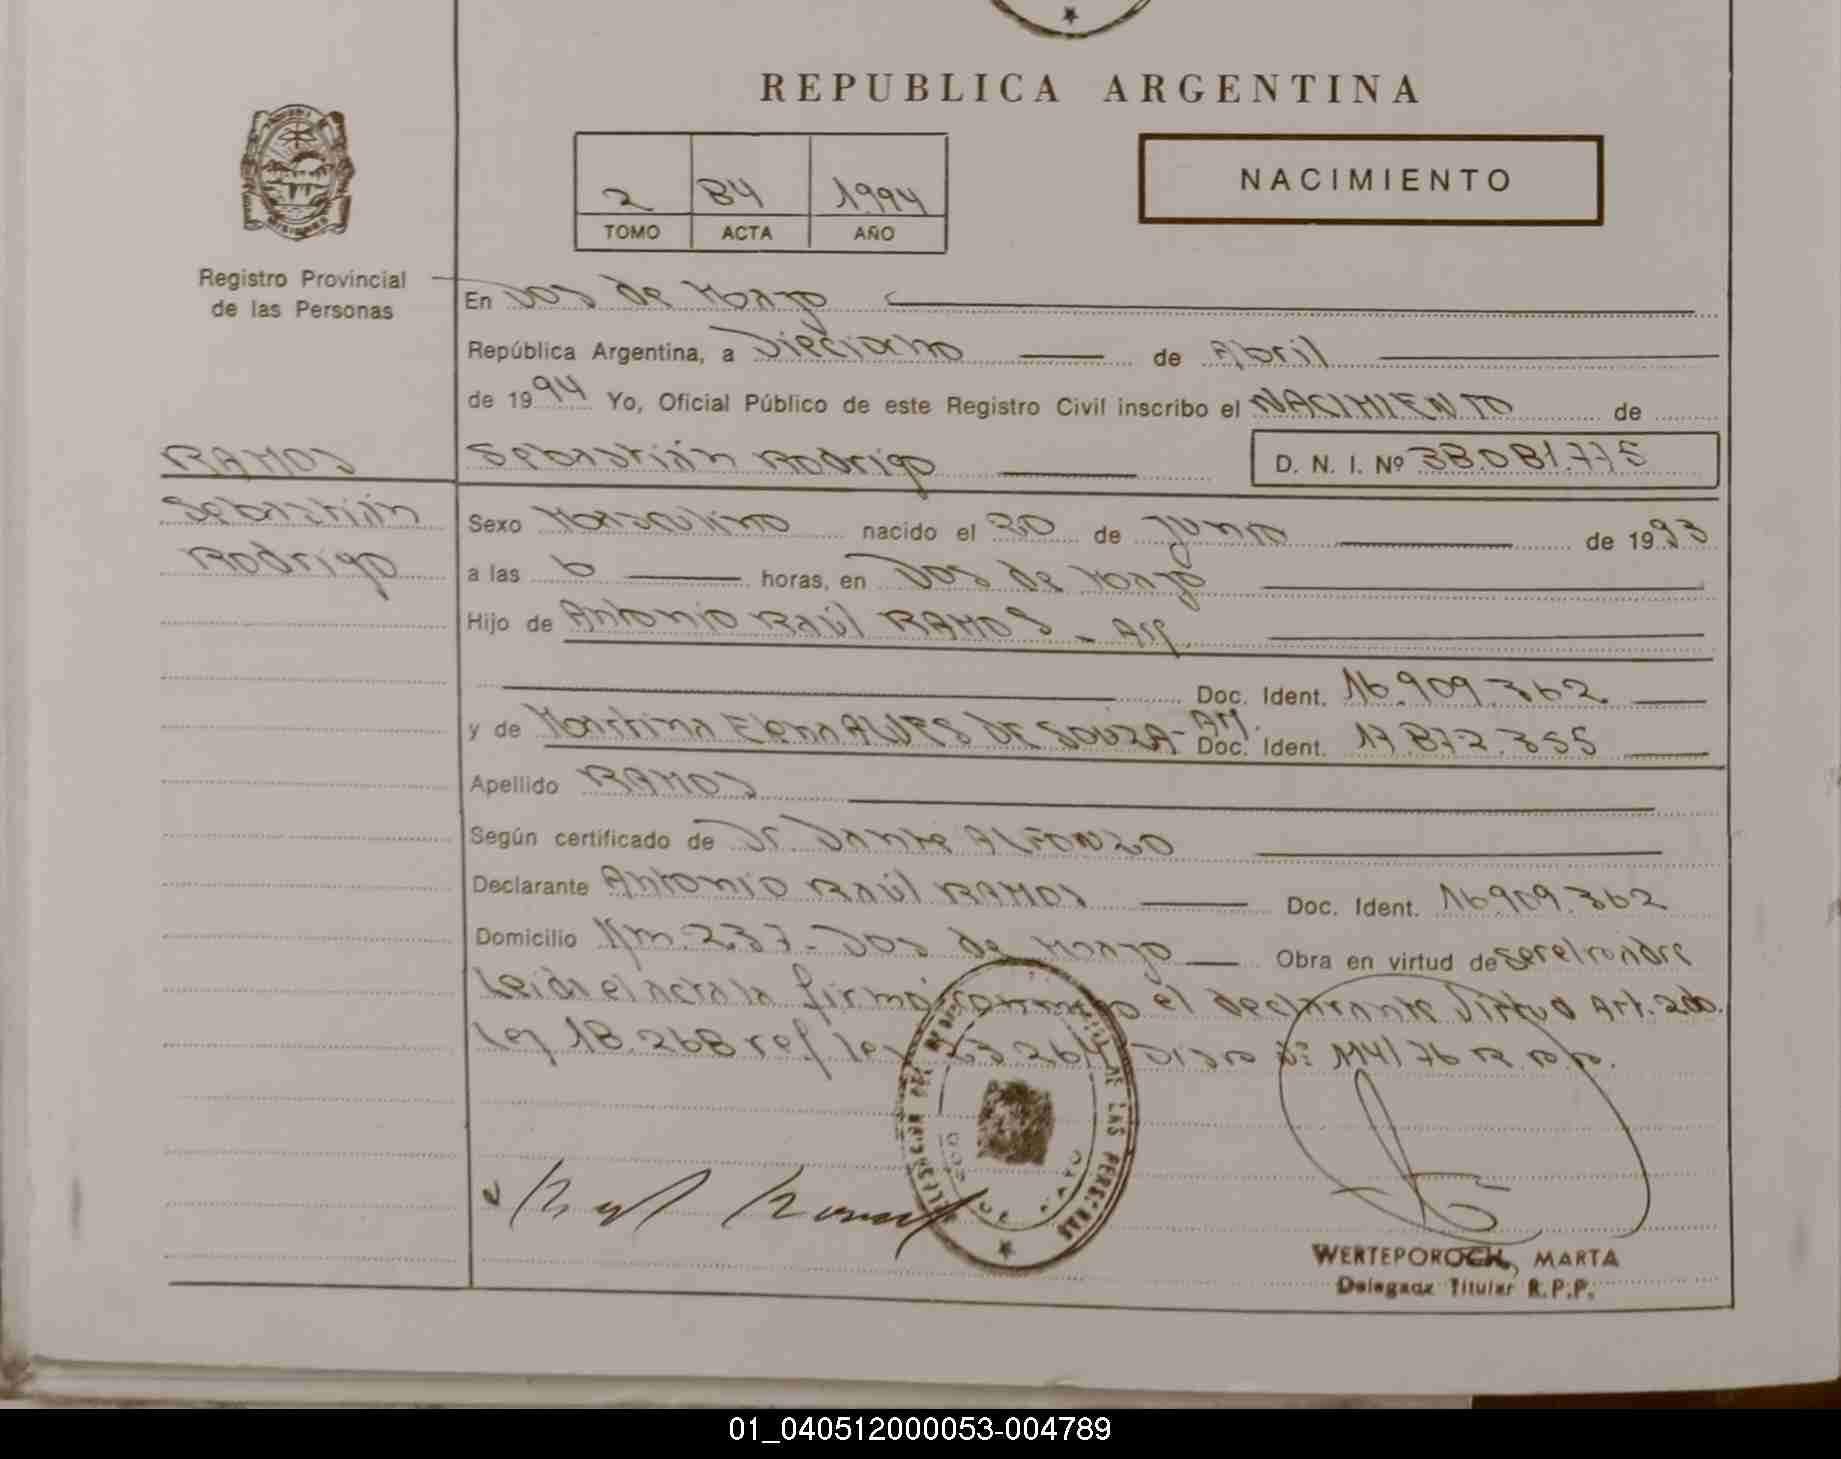 REPUBLICA ARGENTINA
NACIMIENTO
2 84 1994
TOMO ACTA AÑO
Registro Provincial
de las Personas
En Dos de Mayo
República Argentina, a Dieciocho de Abril
de 1994 Yo, Oficial Público de este Registro Civil inscribo el NACIMIENTO de
RAMOS
Sebastián
Rodrigo
Sebastián Rodrigo D. N. I. Nº 38.081.775
Sexo Masculino nacido el 30 de Junio de 1993
a las 6 horas, en Dos de Mayo
Hijo de Antonio Raúl RAMOS - Arg.
Doc. Ident. 16.909.362
y de Martina Elena ALVES DE SOUZA - Arg. Doc. Ident. 17.872.355
Apellido RAMOS
Según certificado de Dr. Dante ALFONZO
Declarante Antonio Raúl RAMOS Doc. Ident. 16.909.362
Domicilio Km. 237 - Dos de Mayo Obra en virtud de ser el padre
Leida el acta la firma conmigo el declarante Virtud Art. 2do.
Ley 18.268 ref ley 23.264 N° 114/76 R.P.P.
DE LAS PERSONAS
DOS DE MAYO
WERTEPOROCH, MARTA
Delegada Titular R.P.P.
01_040512000053-004789